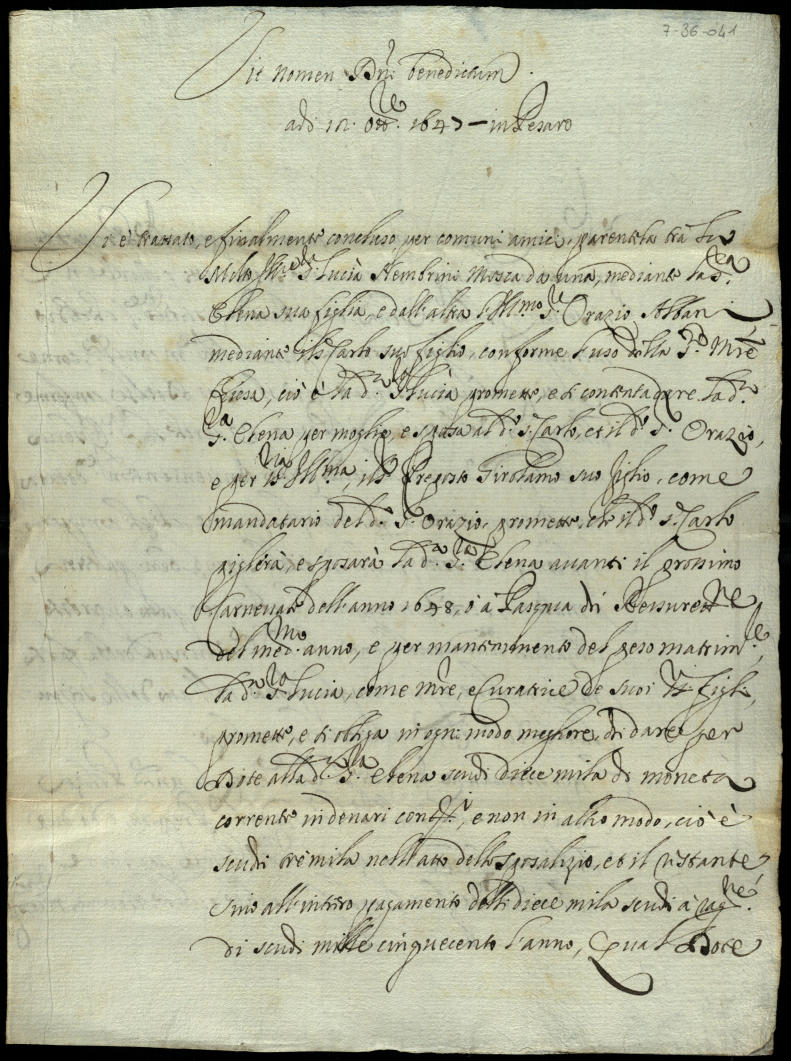 7-36-041
Sit nomen Dni benedictum.
adi 12. Ottre. 1647 in Pesaro
Si è trattato, e finalmente concluso per comuni amici, parentela trà la
Molto Illre Sra Lucia Hembrini Mosca da una, mediante la Sra
Elena sua figlia, e dall'altra l'Illmo Sre Orazio Albani
mediante il s. Carlo suo figlio, conforme l'uso della Sta Mre
Chiesa, ciò è la da Sra Lucia promette, e si contenta dare la da
Sra Elena per moglie, e sposa al do s. Carlo, et il do Sr Orazio,
e per VS Illma, il Sr Preposto Girolamo suo figlio, come
mandatario del do Sr Orazio, promette, che il do s. Carlo
piglerà, e sposarà la da Sra Elena avanti il prossimo
Carnevale dell'anno 1648, ò à Pasqua di Resurettne
del medmo anno, e per mantenimento del peso matrimle,
la da Sra Lucia, come mre, e Curatrice de suoi figli,
promette, e si obliga in ogni modo megliore, di dare per
Dote alla da Sra Elena scudi diece mila di moneta
corrente in denari contti, e non in altro modo, ciò è
scudi trè mila nell'atto dello sposalizio, et il restante
sino all'intiero pagamento delli diece mila scudi à ragne
di scudi mille cinquecento l'anno, Qual Dote